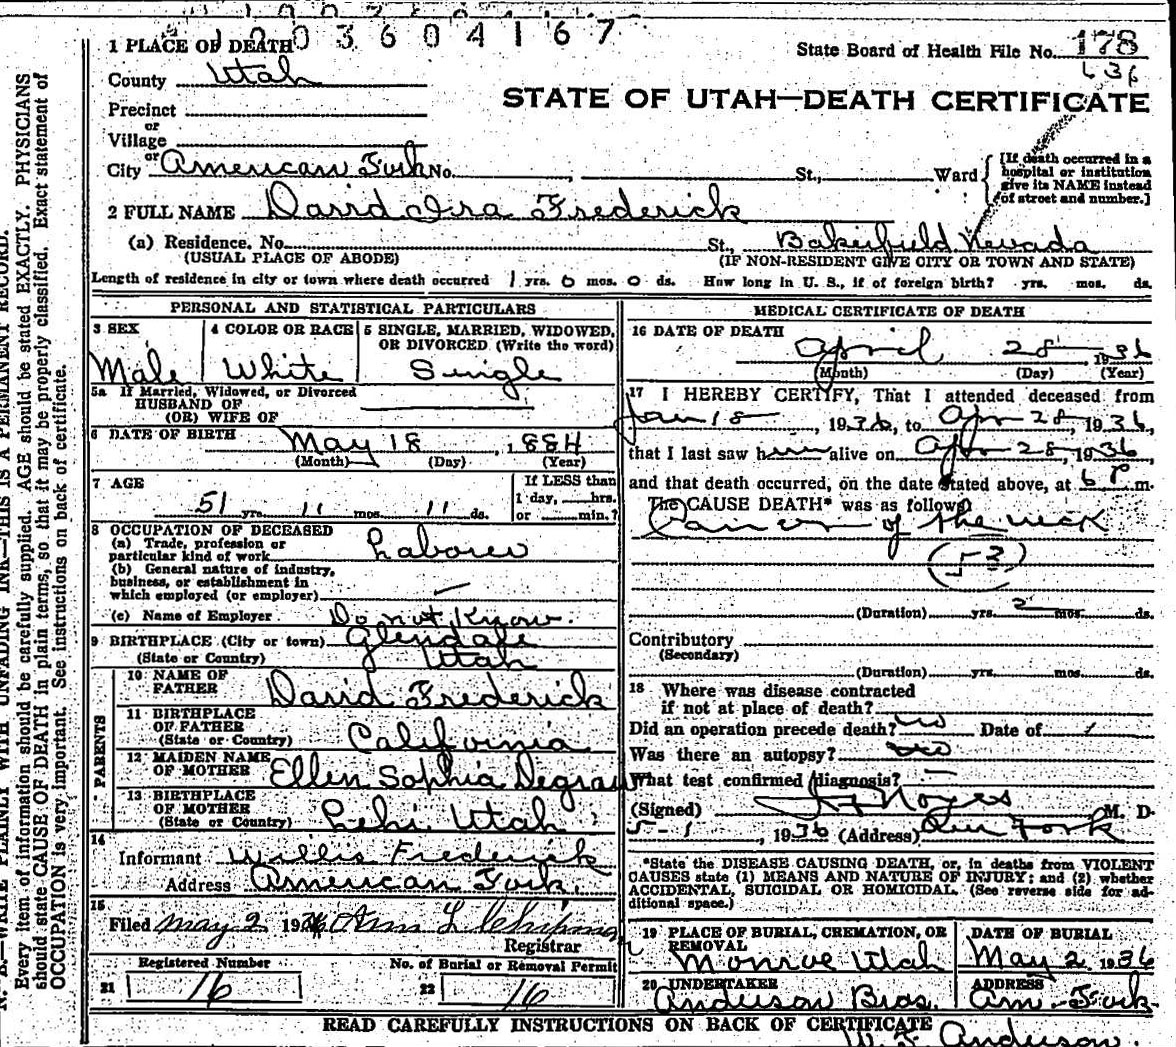 1003604167
1 PLACE OF DEATH
State Board of Health File No. 178
County Utah
636
STATE OF UTAH—DEATH CERTIFICATE
Precinct
or
Village
or
City American Fork No. , St., Ward
[If death occurred in a hospital or institution give its NAME instead of street and number.]
2 FULL NAME David Ira Frederick
(a) Residence. No. St., Bakerfield Nevada
(USUAL PLACE OF ABODE) (IF NON-RESIDENT GIVE CITY OR TOWN AND STATE)
Length of residence in city or town where death occurred 1 yrs. 0 mos. 0 ds. How long in U. S., if of foreign birth? yrs. mos. ds.
PERSONAL AND STATISTICAL PARTICULARS
3 SEX
Male
4 COLOR OR RACE
White
5 SINGLE, MARRIED, WIDOWED,
OR DIVORCED (Write the word)
Single
5a If Married, Widowed, or Divorced
HUSBAND OF
(OR) WIFE OF
6 DATE OF BIRTH May 18, 1884
(Month) (Day) (Year)
7 AGE
51 yrs. 11 mos. 11 ds.
If LESS than
1 day, hrs.
or min.?
8 OCCUPATION OF DECEASED
(a) Trade, profession or
particular kind of work Laborer
(b) General nature of industry,
business, or establishment in
which employed (or employer) —
(c) Name of Employer Do not Know.
9 BIRTHPLACE (City or town) Glendale
(State or Country) Utah
PARENTS
10 NAME OF
FATHER David Frederick
11 BIRTHPLACE
OF FATHER
(State or Country) California
12 MAIDEN NAME
OF MOTHER Ellen Sophia Degraw
13 BIRTHPLACE
OF MOTHER
(State or Country) Lehi Utah
14
Informant Willis Frederick
Address American Fork.
15
Filed May 2 1936 Ann L Chipman
Registrar
Registered Number
21 16
No. of Burial or Removal Permit
22 16
MEDICAL CERTIFICATE OF DEATH
16 DATE OF DEATH
April 28 1936
(Month) (Day) (Year)
17 I HEREBY CERTIFY, That I attended deceased from
Jan 18, 1936, to Apr 28, 1936,
that I last saw him alive on Apr 28, 1936
and that death occurred, on the date stated above, at 6 P. m.
The CAUSE DEATH* was as follows
Cancer of the neck
(53)
(Duration) yrs. 2 mos. ds.
Contributory
(Secondary)
(Duration) yrs. mos. ds.
18 Where was disease contracted
if not at place of death?
Did an operation precede death? no Date of
Was there an autopsy? no
What test confirmed diagnosis? —
(Signed) Noyes M. D.
5-1, 1936 (Address) Am Fork
*State the DISEASE CAUSING DEATH, or, in deaths from VIOLENT
CAUSES state (1) MEANS AND NATURE OF INJURY; and (2) whether
ACCIDENTAL, SUICIDAL OR HOMICIDAL. (See reverse side for ad-
ditional space.)
19 PLACE OF BURIAL, CREMATION, OR
REMOVAL
Monroe Utah
DATE OF BURIAL
May 2 1936
20 UNDERTAKER
Anderson Bros.
ADDRESS
Am. Fork.
READ CAREFULLY INSTRUCTIONS ON BACK OF CERTIFICATE
Anderson.
N. B.—WRITE PLAINLY WITH UNFADING INK—THIS IS A PERMANENT RECORD.
Every item of information should be carefully supplied. AGE should be stated EXACTLY. PHYSICIANS
should state CAUSE OF DEATH in plain terms, so that it may be properly classified. Exact statement of
OCCUPATION is very important. See instructions on back of certificate.